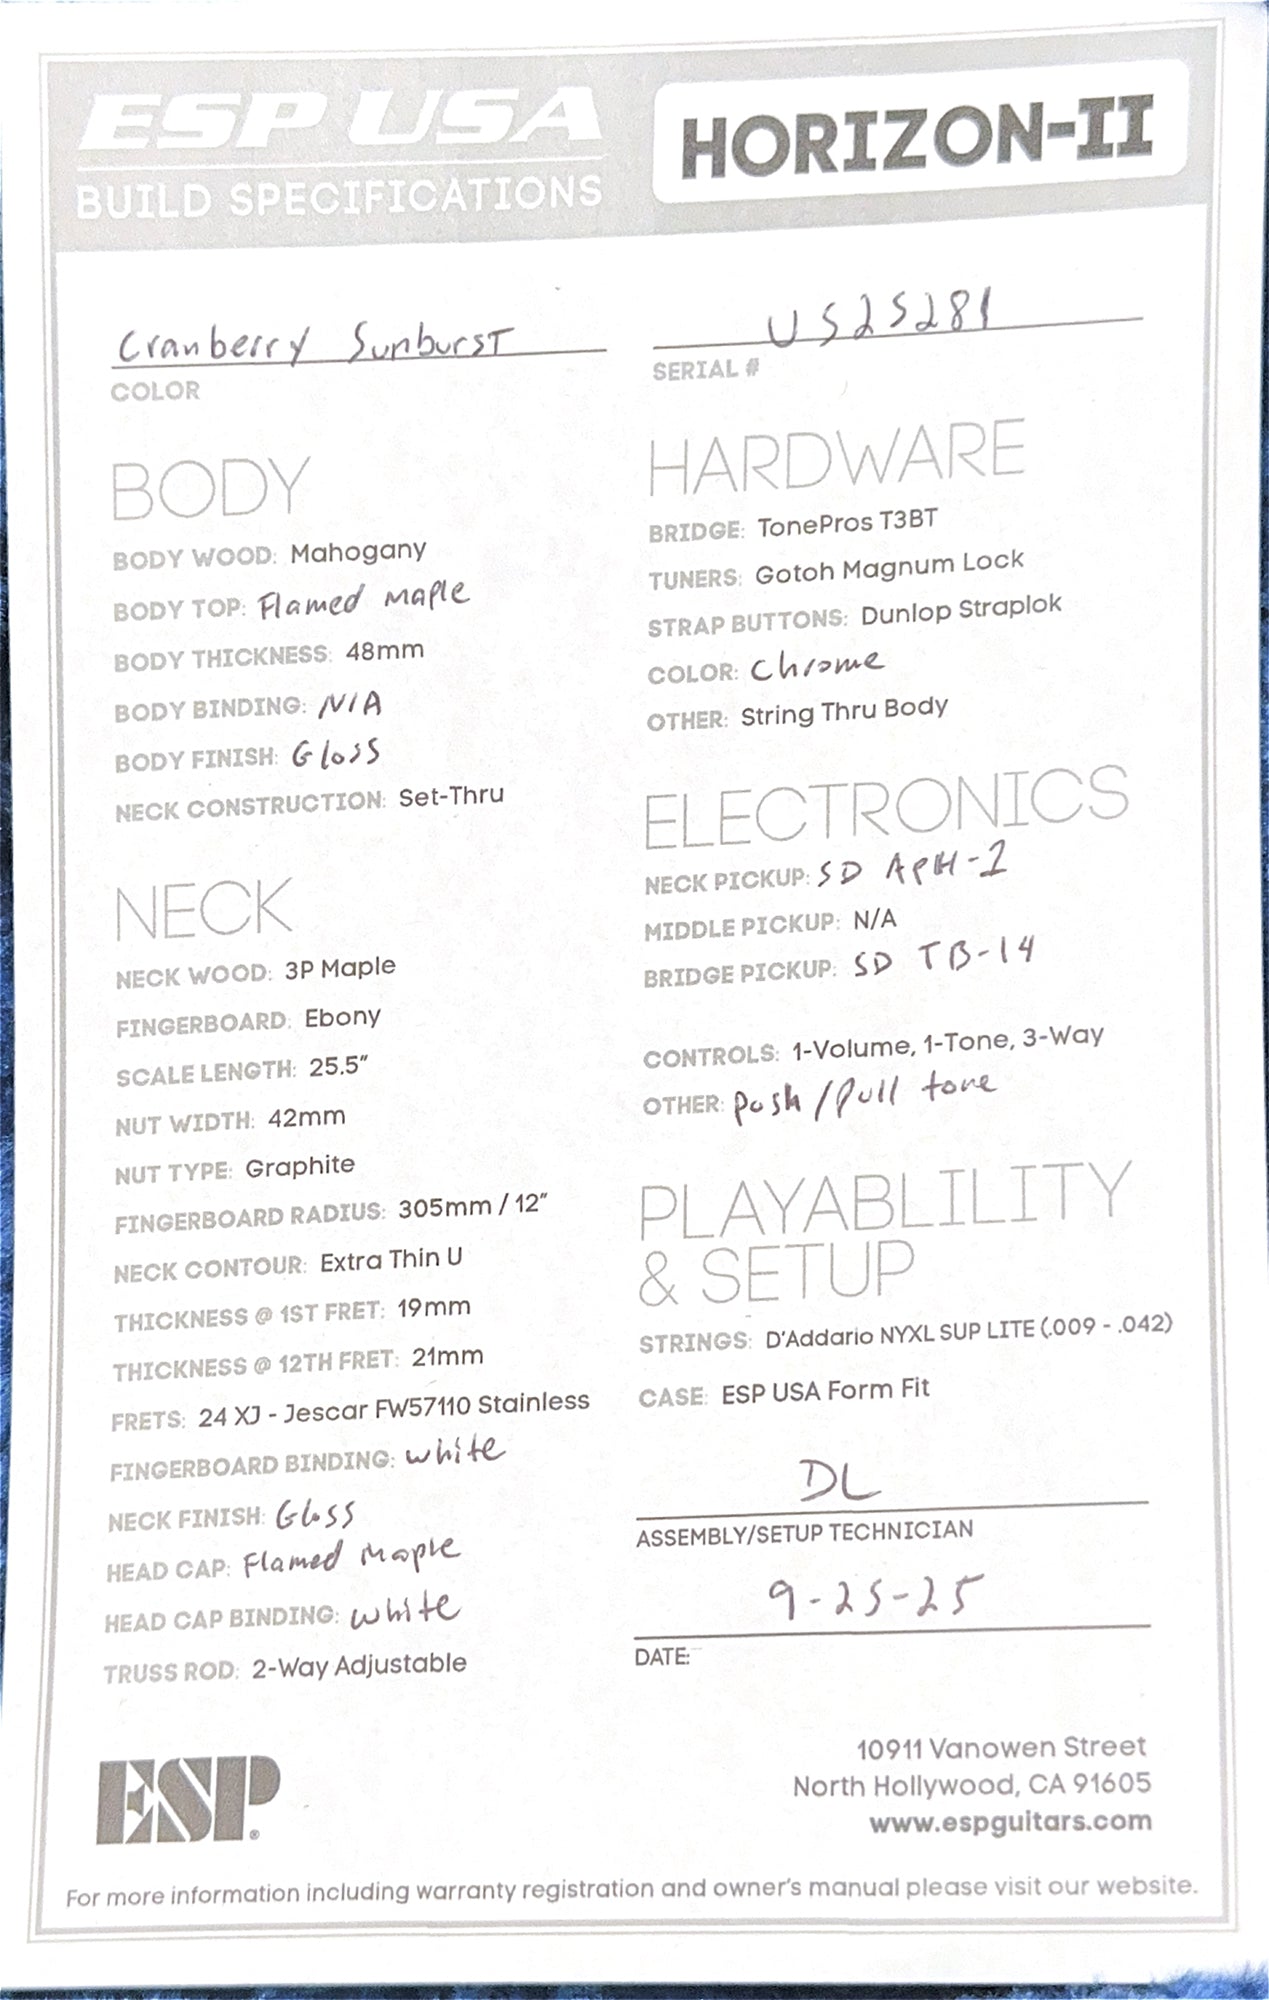 ESP USA
BUILD SPECIFICATIONS
HORIZON-II
Cranberry Sunburst
COLOR
US25281
SERIAL #
BODY
BODY WOOD: Mahogany
BODY TOP: Flamed maple
BODY THICKNESS: 48mm
BODY BINDING: N/A
BODY FINISH: Gloss
NECK CONSTRUCTION: Set-Thru
NECK
NECK WOOD: 3P Maple
FINGERBOARD: Ebony
SCALE LENGTH: 25.5"
NUT WIDTH: 42mm
NUT TYPE: Graphite
FINGERBOARD RADIUS: 305mm / 12"
NECK CONTOUR: Extra Thin U
THICKNESS @ 1ST FRET: 19mm
THICKNESS @ 12TH FRET: 21mm
FRETS: 24 XJ - Jescar FW57110 Stainless
FINGERBOARD BINDING: white
NECK FINISH: Gloss
HEAD CAP: Flamed Maple
HEAD CAP BINDING: white
TRUSS ROD: 2-Way Adjustable
HARDWARE
BRIDGE: TonePros T3BT
TUNERS: Gotoh Magnum Lock
STRAP BUTTONS: Dunlop Straplok
COLOR: Chrome
OTHER: String Thru Body
ELECTRONICS
NECK PICKUP: SD APH-1
MIDDLE PICKUP: N/A
BRIDGE PICKUP: SD TB-14
CONTROLS: 1-Volume, 1-Tone, 3-Way
OTHER: push/pull tone
PLAYABLILITY
& SETUP
STRINGS: D'Addario NYXL SUP LITE (.009 - .042)
CASE: ESP USA Form Fit
DL
ASSEMBLY/SETUP TECHNICIAN
9-25-25
DATE:
ESP®
10911 Vanowen Street
North Hollywood, CA 91605
www.espguitars.com
For more information including warranty registration and owner's manual please visit our website.